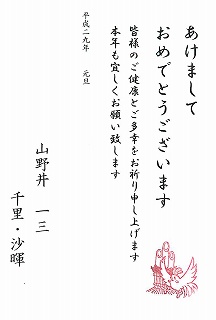 あけまして
おめでとうございます
皆様のご健康とご多幸をお祈り申し上げます
本年も宜しくお願い致します
平成二九年　元旦
山野井　一三
千里・沙暉